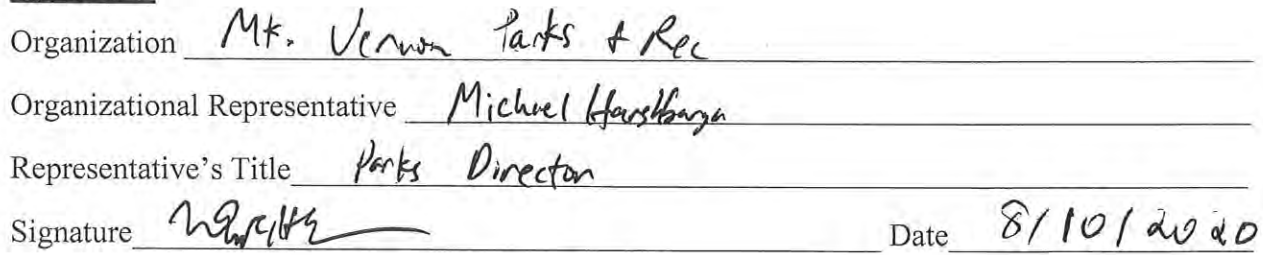 Organization Mt. Vernon Parks & Rec
Organizational Representative Michael Harshbarger
Representative's Title Parks Director
Signature Date 8/10/2020